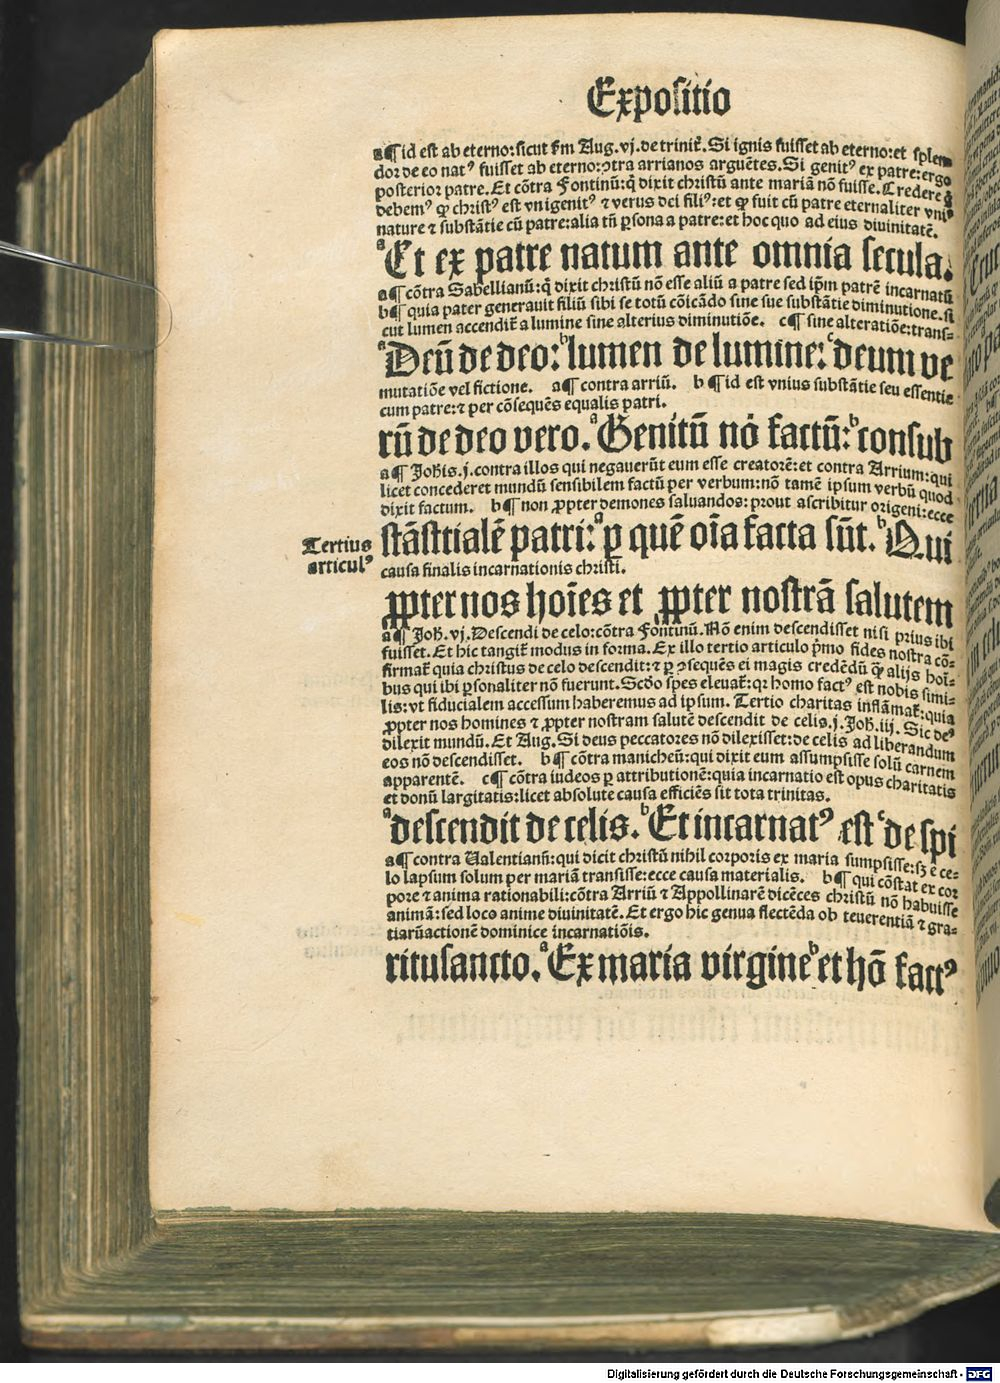 Expositio
a¶ id est ab eterno: sicut fm̄ Aug. vj. de trinit̄. Si ignis fuisset ab eterno: et splen
dor de eo natꝰ fuisset ab eterno: ↄtra arrianos arguētes. Si genitꝰ ex patre: ergo
posterior patre. Et cōtra Fontinū: q̄ dixit christū ante mariā nō fuisse. Credere
debemꝰ ꝙ christꝰ est vnigenitꝰ ⁊ verus dei filiꝰ: et ꝙ fuit cū patre eternaliter vniꝰ
nature ⁊ substātie cū patre: alia tn̄ ꝑsona a patre: et hoc quo ad eius diuinitatē.
ᵃEt ex patre natum ante omnia secula.
a¶ cōtra Sabellianū: q̄ dixit christū nō esse aliū a patre sed ip̄m patrē incarnatū
b¶ quia pater generauit filiū sibi se totū cōicādo sine sue substātie diminutione. si
cut lumen accendit̄ a lumine sine alterius diminutiōe. c¶ sine alteratiōe: trans-
ᵃDeū de deo: ᵇlumen de lumine: ᶜdeum ve
mutatiōe vel fictione. a¶ contra arriū. b¶ id est vnius substātie seu essentie
cum patre: ⁊ per cōsequēs equalis patri.
rū de deo vero. ᵃGenitū nō factū: ᵇconsub
a¶ Johīs. j. contra illos qui negauerūt eum esse creatorē: et contra Arrium: qui
licet concederet mundū sensibilem factū per verbum: nō tamē ipsum verbū quod
dixit factum. b¶ non ꝓpter demones saluandos: prout ascribitur origeni: ecce
Tertius
articulꝰ
stāstialē patri: ᵃꝑ quē oīa facta sūt. ᵇQui
causa finalis incarnationis christi.
ꝓpter nos hoīes et ꝓpter nostrā salutem
a¶ Joh̄. vj. Descendi de celo: cōtra Fontinū. Nō enim descendisset nisi prius ibi
fuisset. Et hic tangit̄ modus in forma. Ex illo tertio articulo p̄mo fides nostra cō-
firmat̄ quia christus de celo descendit: ⁊ ꝑ ↄsequēs ei magis credēdū ꝙ̄ alijs hoī-
bus qui ibi ꝑsonaliter nō fuerunt. Scd̄o spes eleuat̄: qꝛ homo factꝰ est nobis simi-
lis: vt fiducialem accessum haberemus ad ipsum. Tertio charitas inflāmat̄: quia
ꝓpter nos homines ⁊ ꝓpter nostram salutē descendit de celis. j. Joh̄. iij. Sic deꝰ
dilexit mundū. Et Aug. Si deus peccatores nō dilexisset: de celis ad liberandum
eos nō descendisset. b¶ cōtra manicheū: qui dixit eum assumpsisse solū carnem
apparentē. c¶ cōtra iudeos ꝑ attributionē: quia incarnatio est opus charitatis
et donū largitatis: licet absolute causa efficiēs sit tota trinitas.
ᵃdescendit de celis. ᵇEt incarnatꝰ est ᶜde spi
a¶ contra Ualentianū: qui dicit christū nihil corporis ex maria sumpsisse: sꝫ e ce-
lo lapsum solum per mariā transisse: ecce causa materialis. b¶ qui cōstat ex cor
pore ⁊ anima rationabili: cōtra Arriū ⁊ Appollinarē dicēces christū nō habuisse
animā: sed loco anime diuinitatē. Et ergo hic genua flectēda ob teuerentiā ⁊ gra-
tiarūactionē dominice incarnatiōis.
ritusancto. ᵃEx maria virgine ᵇet hō factꝰ
Digitalisierung gefördert durch die Deutsche Forschungsgemeinschaft - DFG